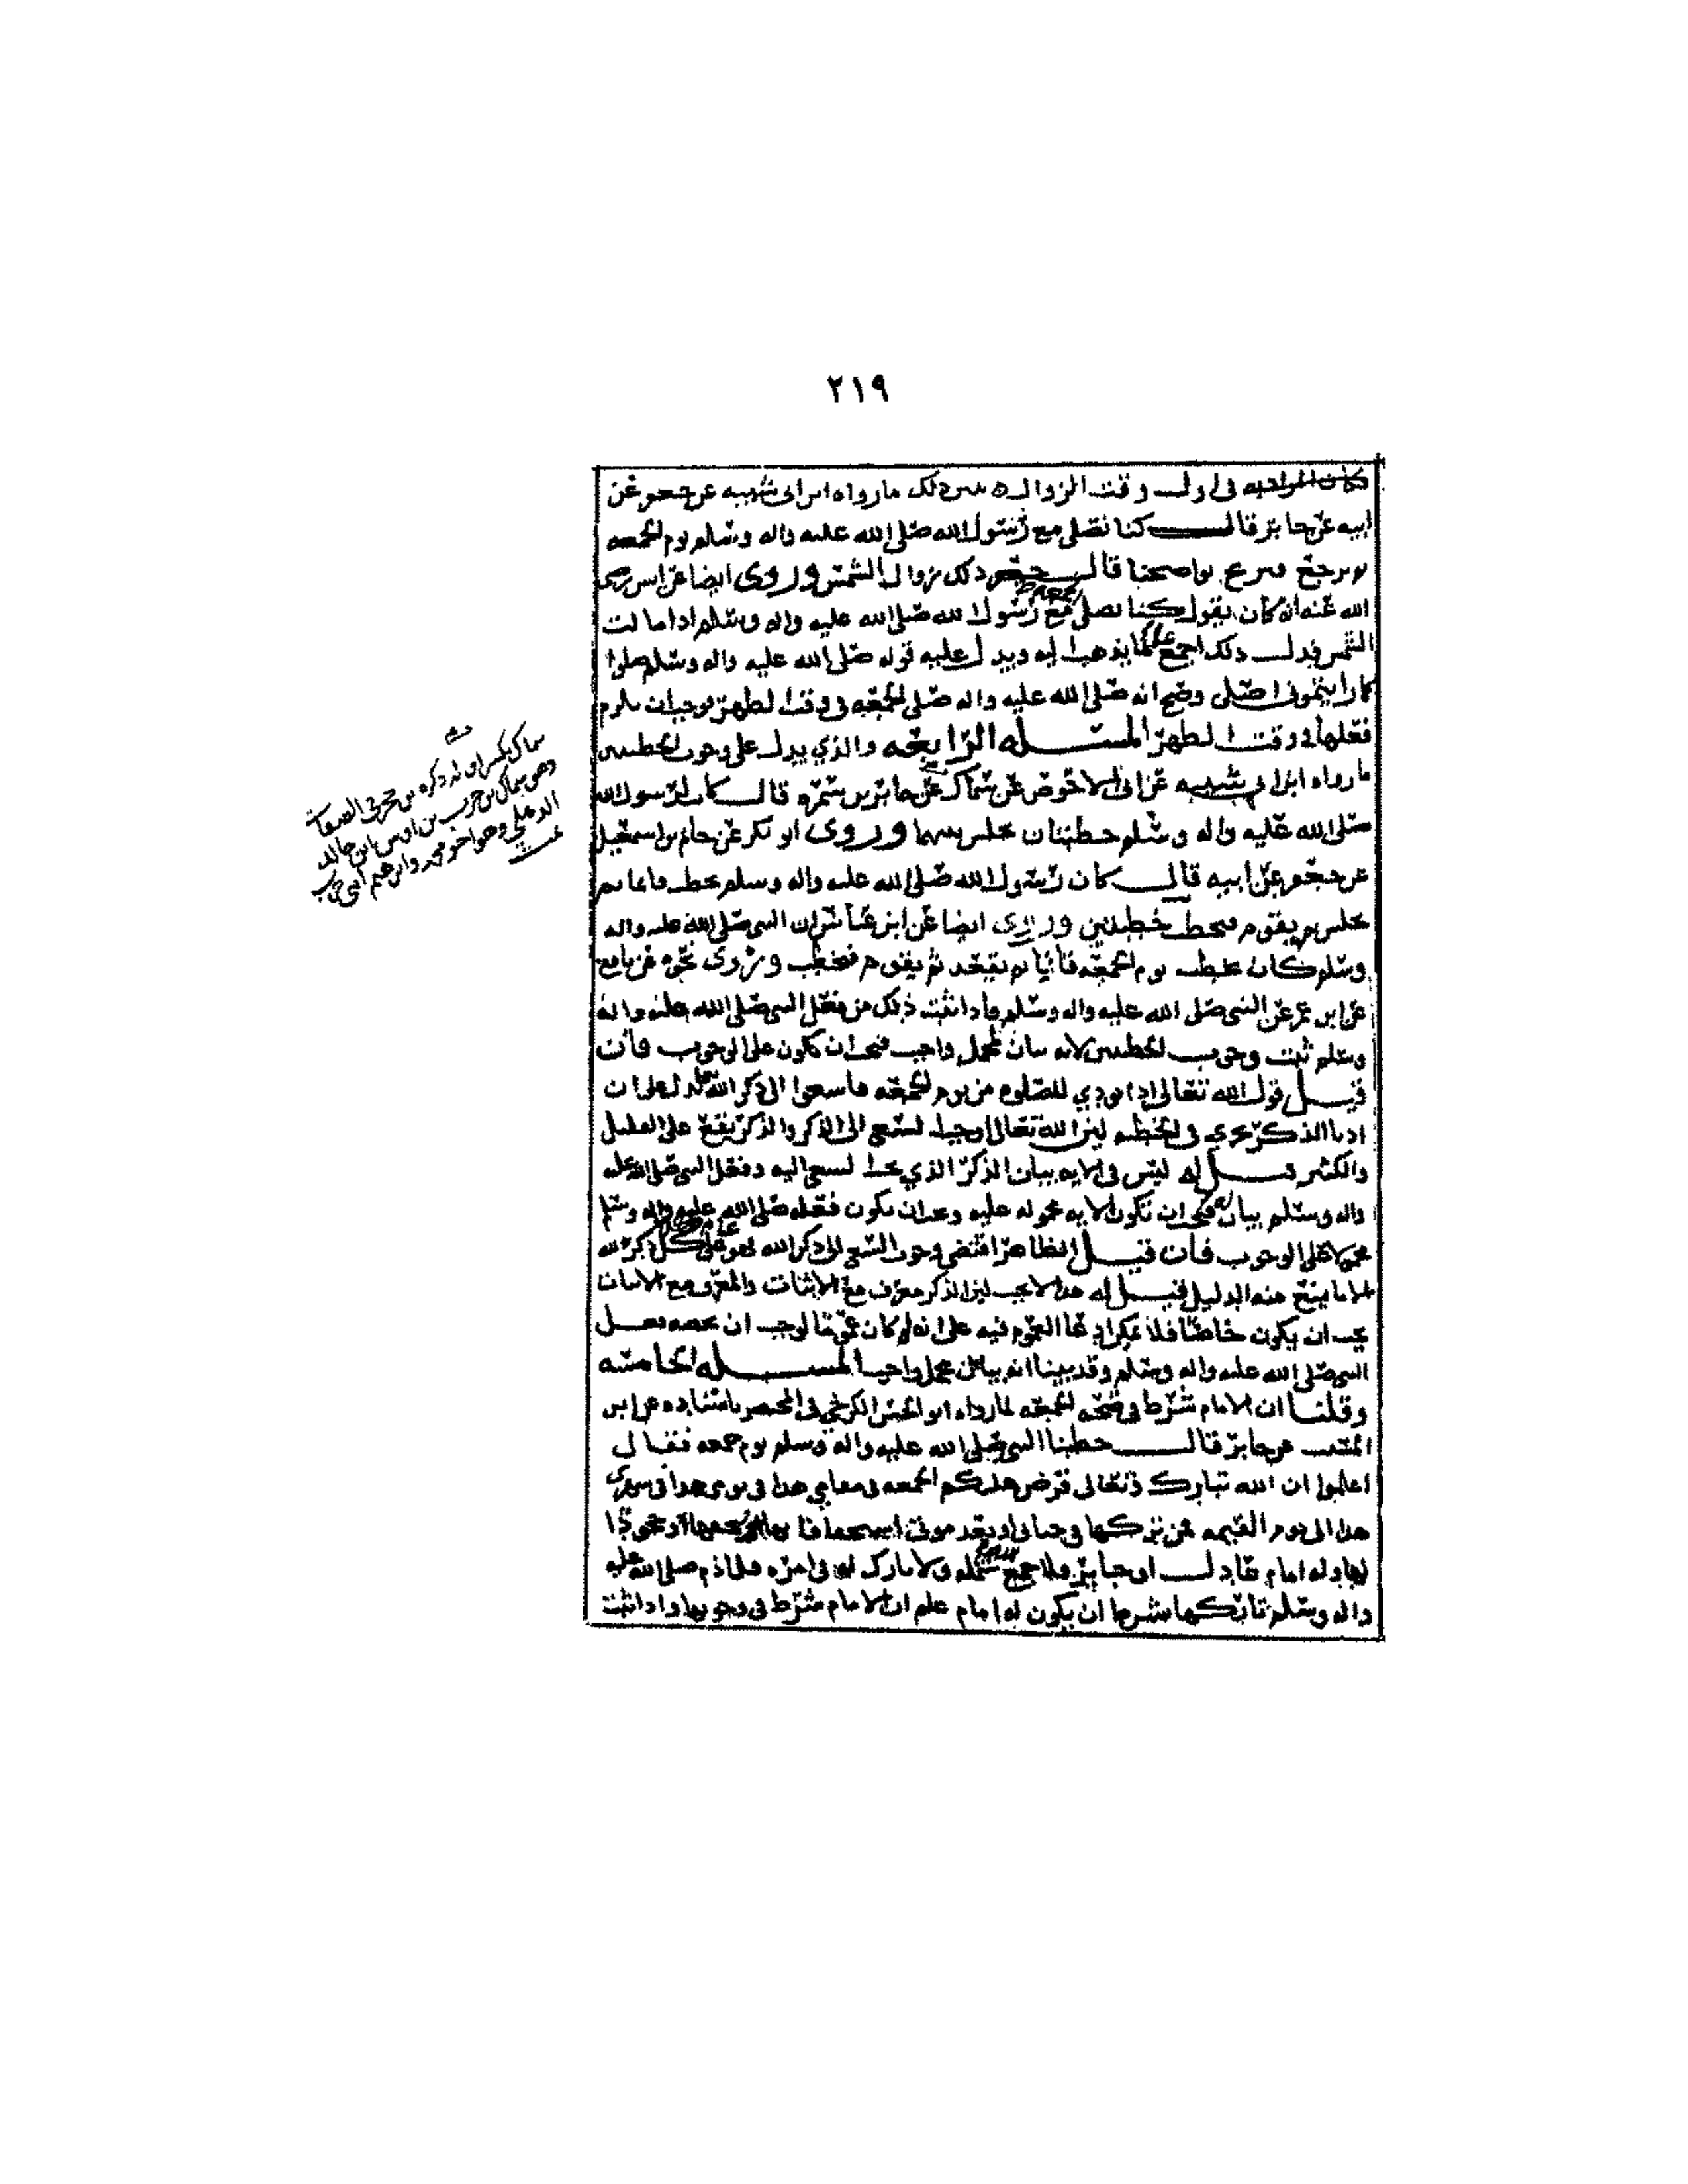 ٢١٩
في اول وقت الزوال ذلك مارواه ابن ابي شيبه عن جعفر عن
ابيه عن جابر قال كنا نصلي مع رسول الله صلى الله عليه واله وسلم يوم الجمعه
ثم نرجع فنريح نواضحنا قال جعفر وذلك زوال الشمس وروى ايضا عن انس رضي
الله عنه انه كان يقول كنا نصلي مع رسول الله صلى الله عليه واله وسلم اذا مالت
الشمس فدل ذلك اجمع على ما نذهب اليه ويدل عليه قوله صلى الله عليه واله وسلم صلوا
كما رايتموني اصلي وصح انه صلى الله عليه واله صلى الجمعه في وقت الظهر فوجب ان يلزم
فعلها في وقت الظهر المسئله الرابعه والذي يدل على وجوب الخطبتين
ما رواه ابن ابي شيبه عن ابي الاحوص عن سماك عن جابر بن سمره قال كان لرسول الله
صلى الله عليه واله وسلم خطبتان يجلس بينهما وروى ابو بكر عن حاتم بن اسمعيل
عن جعفر عن ابيه قال كان رسول الله صلى الله عليه واله وسلم يخطب قائما ثم
يجلس ثم يقوم فيخطب خطبتين وروى ايضا عن ابن عباس ان النبي صلى الله عليه واله
وسلم كان يخطب يوم الجمعه قائما ثم يقعد ثم يقوم فيخطب وروى نحوه عن نافع
عن ابن عمر عن النبي صلى الله عليه واله وسلم واذا ثبت ذلك من فعل النبي صلى الله عليه واله
وسلم ثبت وجوب الخطبتين لانه بيان لمجمل واجب فيجب ان يكون على الوجوب فان
قيل قول الله تعالى اذا نودي للصلوه من يوم الجمعه فاسعوا الى ذكر الله يدل على ان
ادنا الذكر يجزي في الخطبه لان الله تعالى اوجب السعي الى الذكر والذكر يقع على القليل
والكثير قيل له ليس في الايه بيان الذكر الذي يجب السعي اليه وفعل النبي صلى الله عليه
واله وسلم بيان له فيجب ان تكون الايه محموله عليه ويجب ان يكون فعله صلى الله عليه واله وسلم
محمولا على الوجوب فان قيل الظاهر اقتضى وجوب السعي الى ذكر الله فهو عام في كل ذكر لله
الا ما يمنع منه الدليل قيل له هذا لا يجب لان الذكر معرف مع الاثبات والمعرف مع الاثبات
يجب ان يكون خاصا فلا يمكن ادعا العموم فيه على انه لو كان عموما لوجب ان نخصه بفعل
النبي صلى الله عليه واله وسلم وقد بينا انه بيان مجمل واجب المسئله الخامسه
وقلنا ان الامام شرط في صحه الجمعه لما رواه ابو الحسن الكرخي في المختصر باسناده عن ابن
المسيب عن جابر قال خطبنا النبي صلى الله عليه واله وسلم يوم جمعه فقال
اعلموا ان الله تبارك وتعالى فرض عليكم الجمعه في مقامي هذا في يومي هذا في شهري
هذا الى يوم القيمه فمن تركها في حياتي او بعد موتي استخفافا بها او جحودا
لها وله امام عادل او جابر فلا جمع شمله ولا بارك له في امره فلما ذم صلى الله عليه
واله وسلم تاركها بشرط ان يكون له امام علم ان الامام شرط في وجوبها واذا ثبت
سماك بكسر ذكره بن حجر في
وهو سماك بن حرب بن اوس ابن خالد
الذهلي وهو اخو محمد وابرهيم ابني حرب
تمت